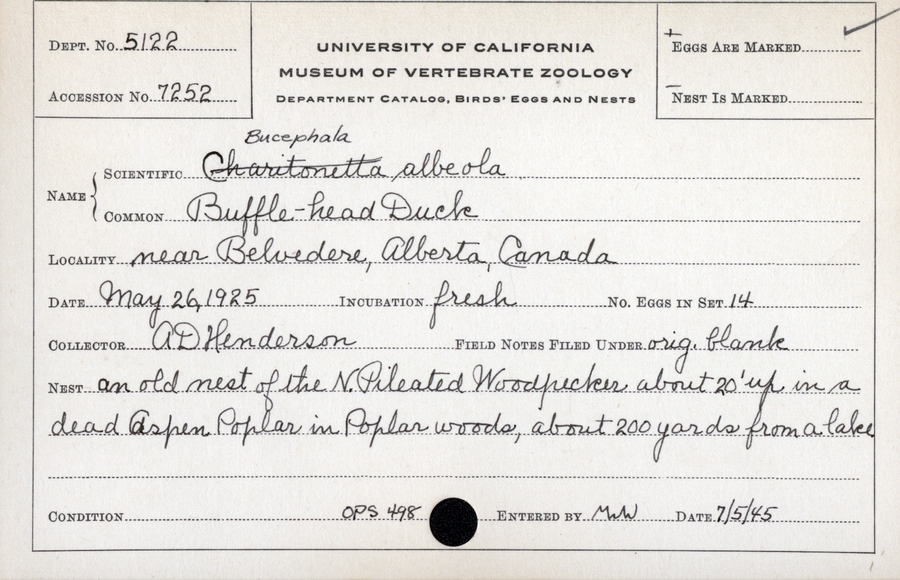 Dept. No. 5122
Accession No. 7252
UNIVERSITY OF CALIFORNIA
MUSEUM OF VERTEBRATE ZOOLOGY
Department Catalog, Birds' Eggs and Nests
+
Eggs Are Marked
–
Nest Is Marked
Bucephala
Name Scientific Charitonetta albeola
Common Buffle-head Duck
Locality near Belvedere, Alberta, Canada
Date May 26, 1925 Incubation fresh No. Eggs in Set 14
Collector A D Henderson Field Notes Filed Under orig. blank
Nest an old nest of the N. Pileated Woodpecker about 20' up in a
dead Aspen Poplar in Poplar woods, about 200 yards from a lake
Condition OPS 498 Entered by Date 7/5/45